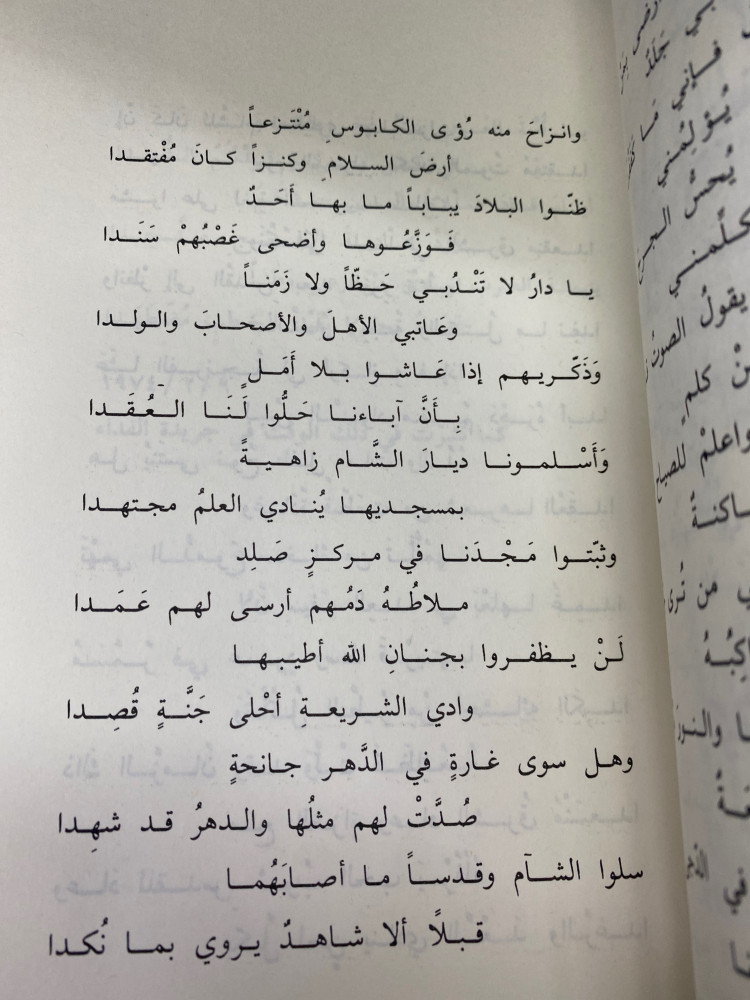 وانزاحَ منه رُؤى الكابوسِ مُنْتَزعاً
أرضَ السلامِ وكنزاً كانَ مُفْتقدا
ظنّوا البلادَ يباباً ما بها أَحَدٌ
فَوَزَّعُوها وأضحى غَصْبُهُمْ سَنَدا
يا دارُ لا تَنْدُبي حَظّاً ولا زَمَناً
وعَاتبي الأهلَ والأصحابَ والولدا
وَذَكّريهم إذا عَاشوا بلا أَمَلٍ
بِأَنَّ آباءنا حَلُّوا لَنَا العُقَدا
وَأَسْلمونا ديارَ الشَّام زاهيةً
بمسجديها يُنادي العلمُ مجتهدا
وثبّتوا مَجْدَنا في مركزٍ صَلِد
ملاطُهُ دَمُهم أرسى لهم عَمَدا
لَنْ يظفروا بجنانِ الله أطيبها
وادي الشريعةِ أحْلى جَنَّةٍ قُصِدا
وهل سوى غارةٍ في الدَّهر جانحةٍ
صُدَّتْ لهم مثلُها والدهرُ قد شهِدا
سلوا الشآم وقدساً ما أصابَهُما
قبلاً ألا شاهدٌ يروي بما نُكدا
يُؤلِمُني
كلِّمني
يقولُ الصوتُ
كلمٍ
واعلمْ للصباح